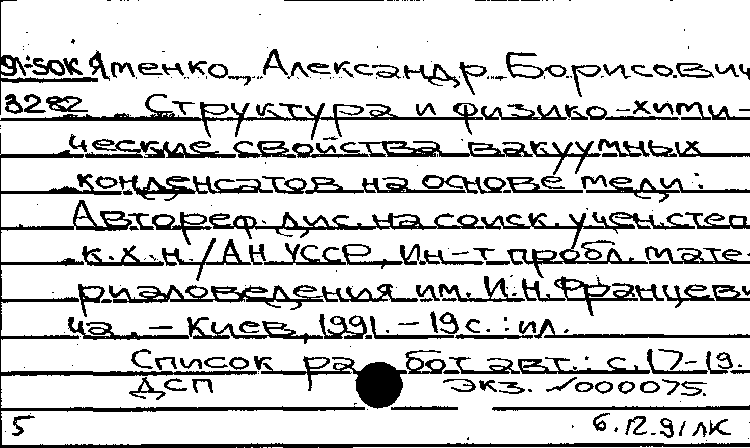 91:SOK Яменко, Александр Борисович
3282 Структура и физико-хими-
ческие свойства вакуумных
конденсатов на основе меди:
Автореф. дис. на соиск. учен. степ
к.х.н. / АН УССР, Ин-т пробл. мате-
риаловедения им. И.Н. Францеви-
ча. - Киев, 1991. - 19 с. : ил.
Список работ авт.: с. 17-19.
ДСП экз. √000075.
5 6.12.91 ЛК